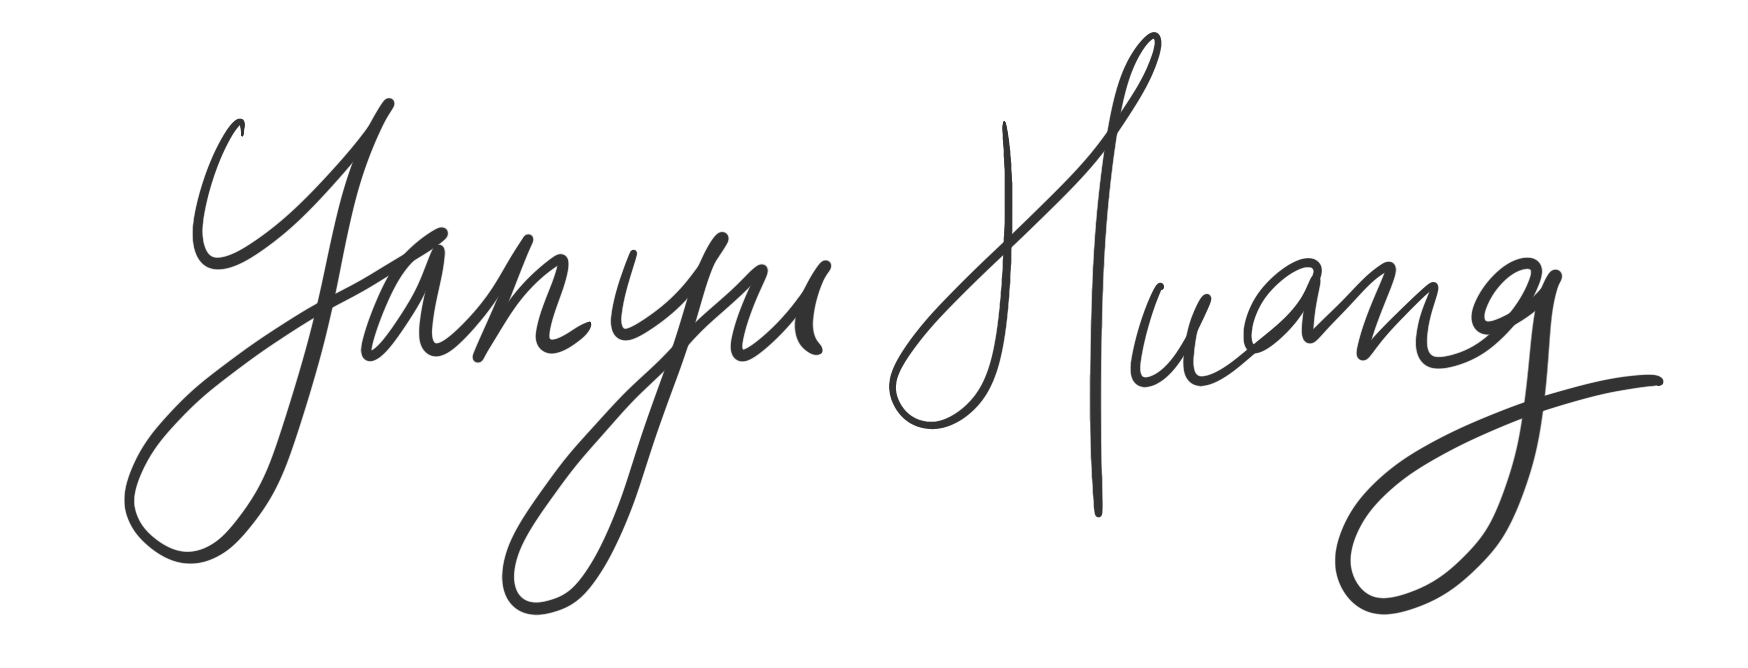 Yanyu Huang